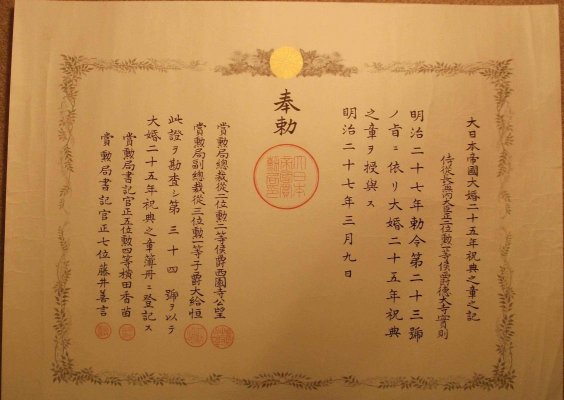 大日本帝國大婚二十五年祝典之章之記
侍從長兼內大臣正二位勲一等侯爵德大寺實則
明治二十七年勅令第二十三號
ノ旨ニ依リ大婚二十五年祝典
之章ヲ授與ス
明治二十七年三月九日
奉勅
賞勲局總裁從二位勲一等侯爵西園寺公望
賞勲局副總裁從三位勲一等子爵大給恒
此證ヲ勘査シ第三十四號ヲ以テ
大婚二十五年祝典之章簿冊ニ登記ス
賞勲局書記官正五位勲四等橫田香苗
賞勲局書記官正七位藤井善言